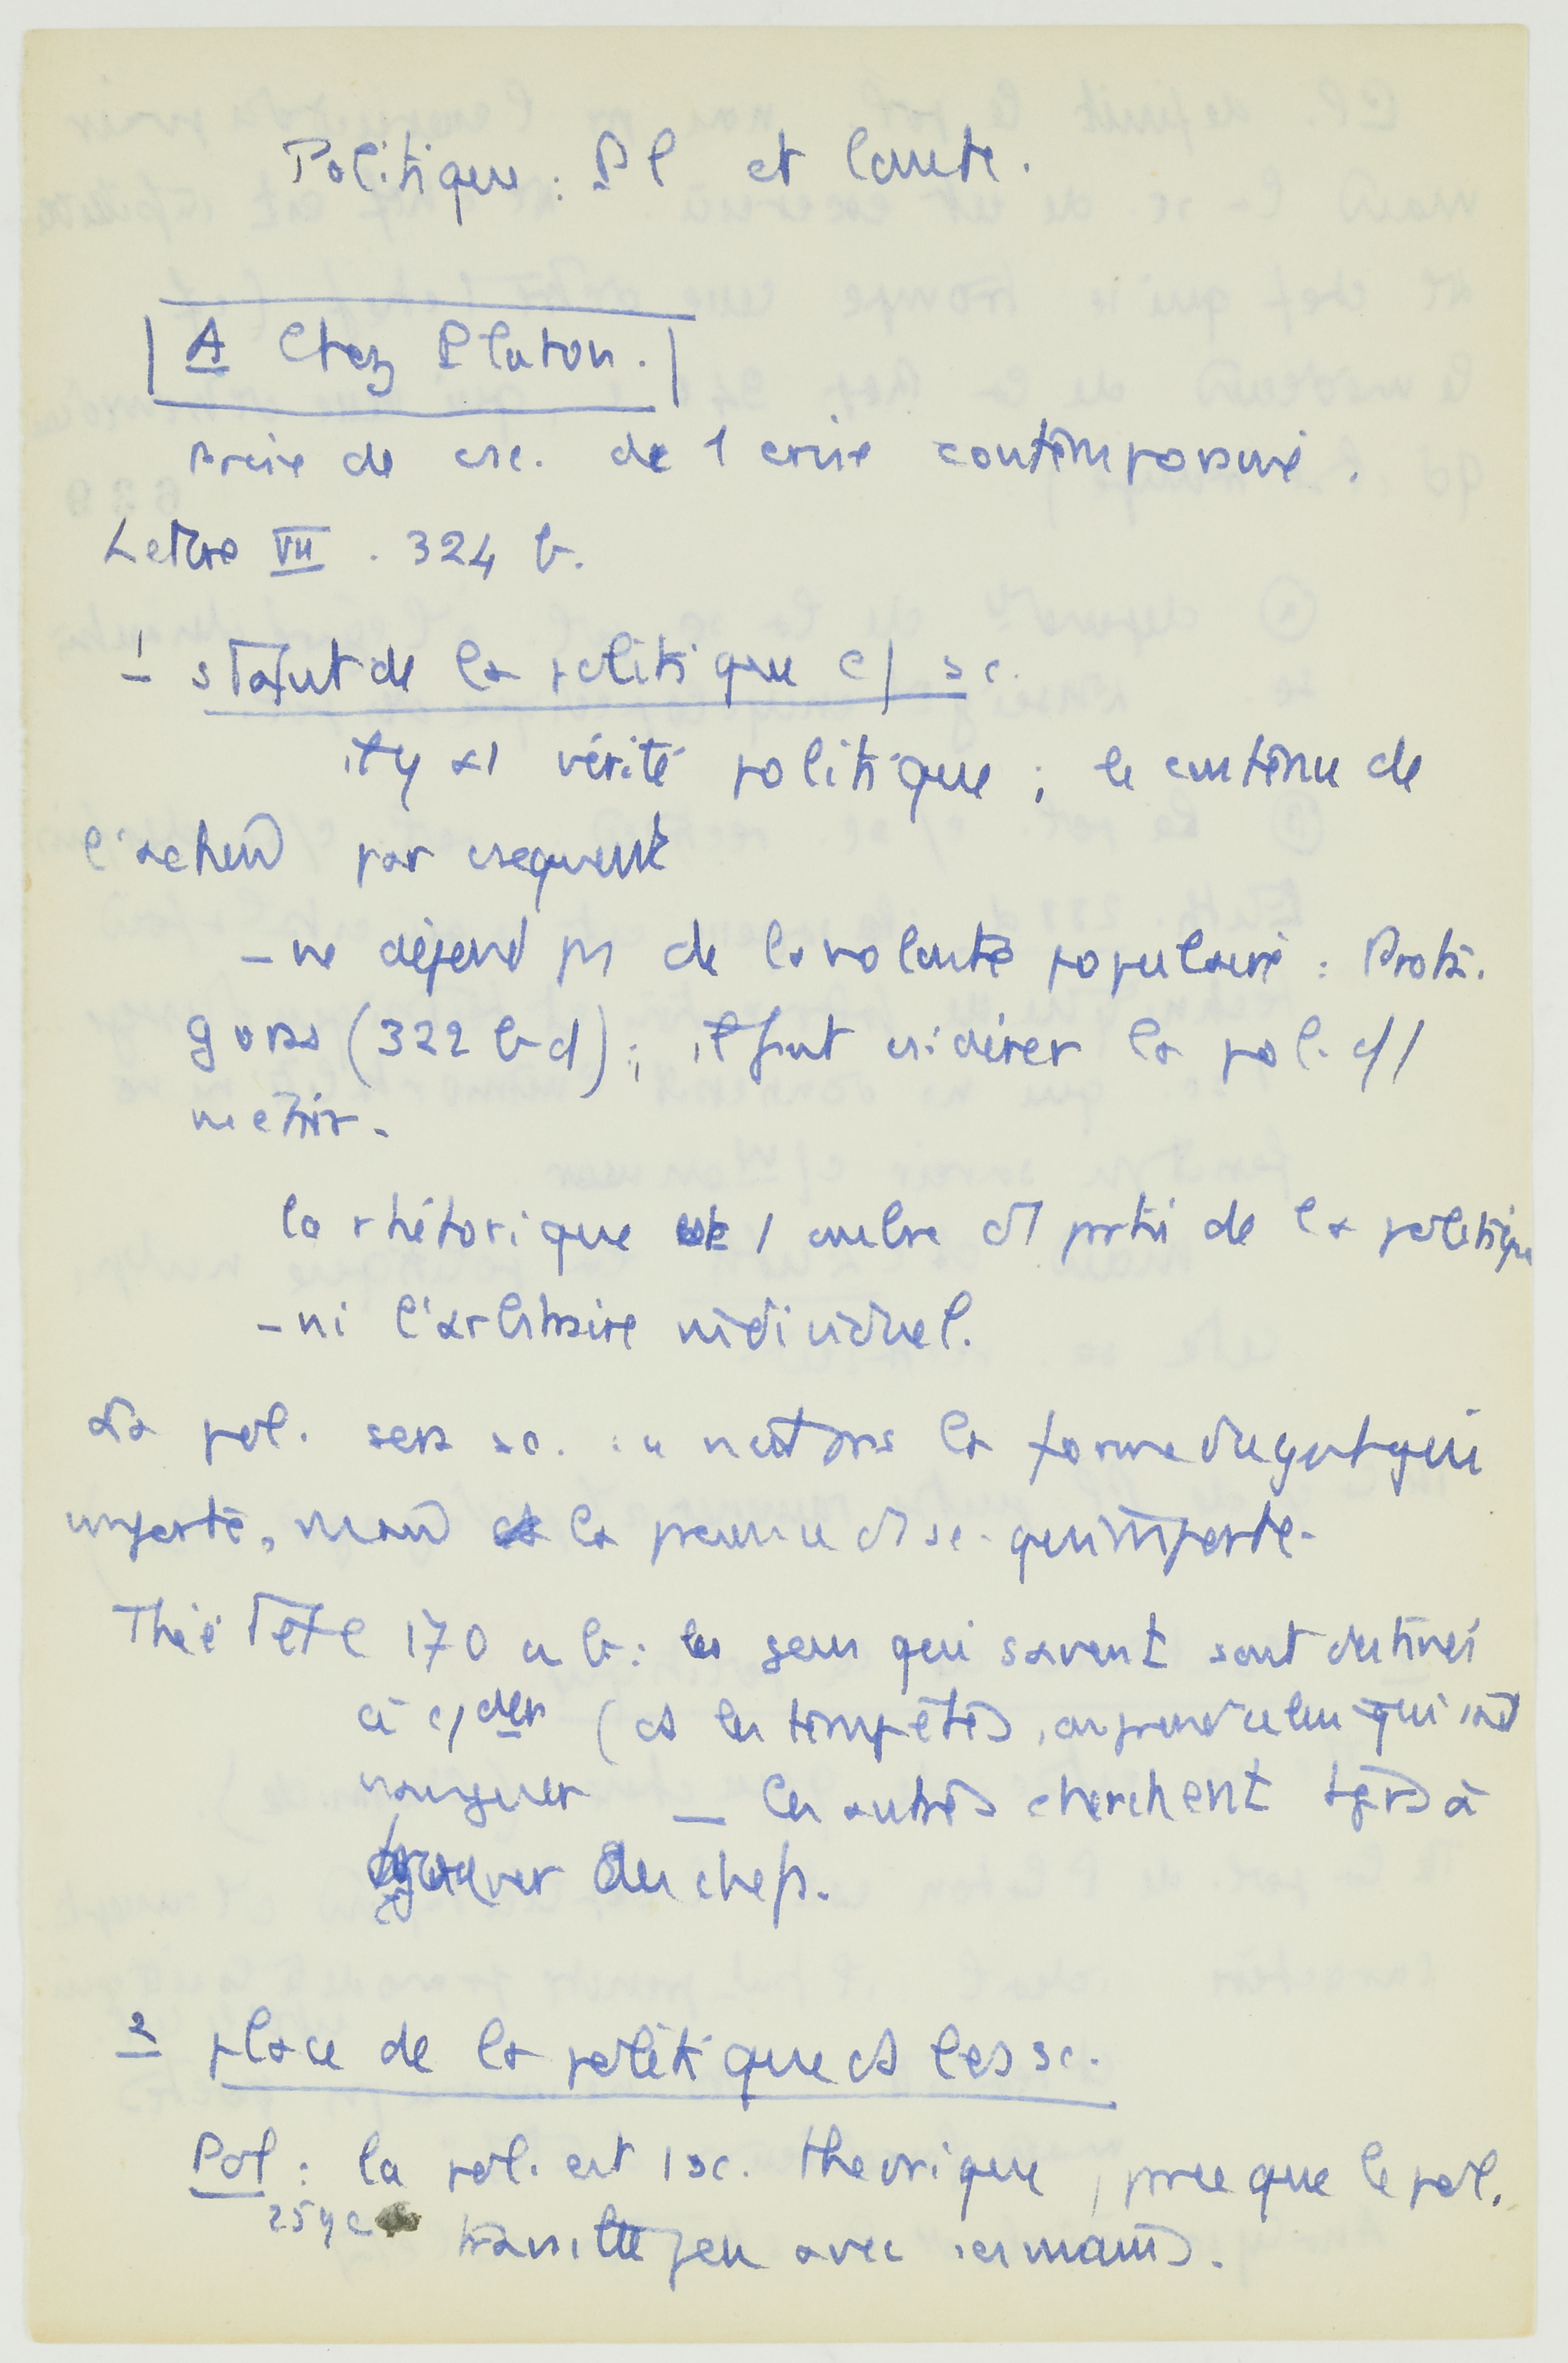 Politique : Pl et Comte.
A Chez Platon.
Prise de csc. de 1 crise contemporaine.
Lettre VII . 324 b.
1 statut de la politique c/ sc.
il y a 1 vérité politique ; le contenu de
l'action par csequent
- ne dépend pas de la volonté populaire : Prota.
goras (322 b d) ; il faut csidérer la pol. c/ 1
metier.
la rhétorique est 1 ombre d'1 partie de la politique
- ni l'arbitraire individuel.
La pol. sera sc. : ce n'est pas la forme du gvt qui
importe, mais la présence d'1 sc. qui importe.
Théétète 170 a b : les gens qui savent sont destinés
à c/der (ds les tempêtes, on prend celui qui sait
naviguer — les autres cherchent tjrs à
trouver des chefs.
2 place de la politique ds les sc.
Pol : la pol. est 1 sc. théorique, pce que le pol.
259 c travaille peu avec ses mains.